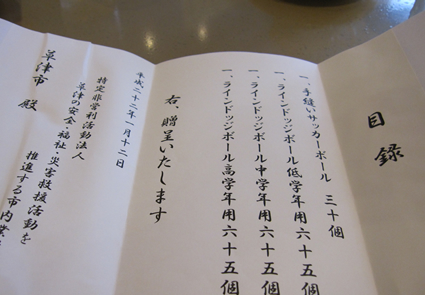 目録
一、手縫いサッカーボール 三十個
一、ラインドッジボール低学年用六十五個
一、ラインドッジボール中学年用六十五個
一、ラインドッジボール高学年用六十五個
右、贈呈いたします
平成二十二年一月十二日
特定非営利活動法人
草津の安全・福祉・災害救援活動を
推進する市内業
草津市 殿